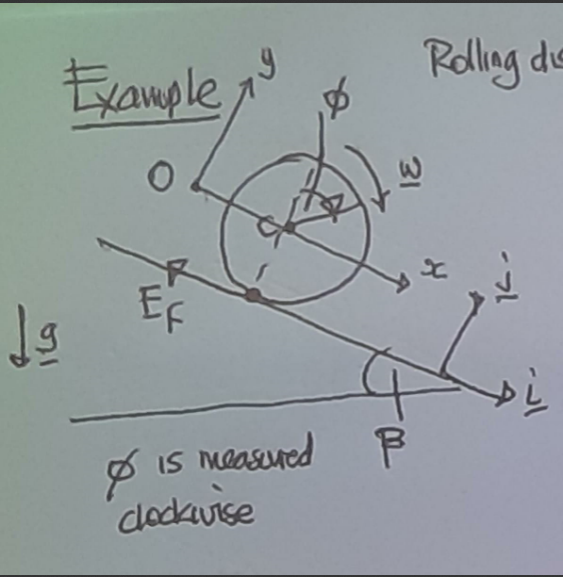 Example
Rolling
y
ϕ
O
ω
C
x
E_F
j
g
i
β
ϕ is measured
clockwise